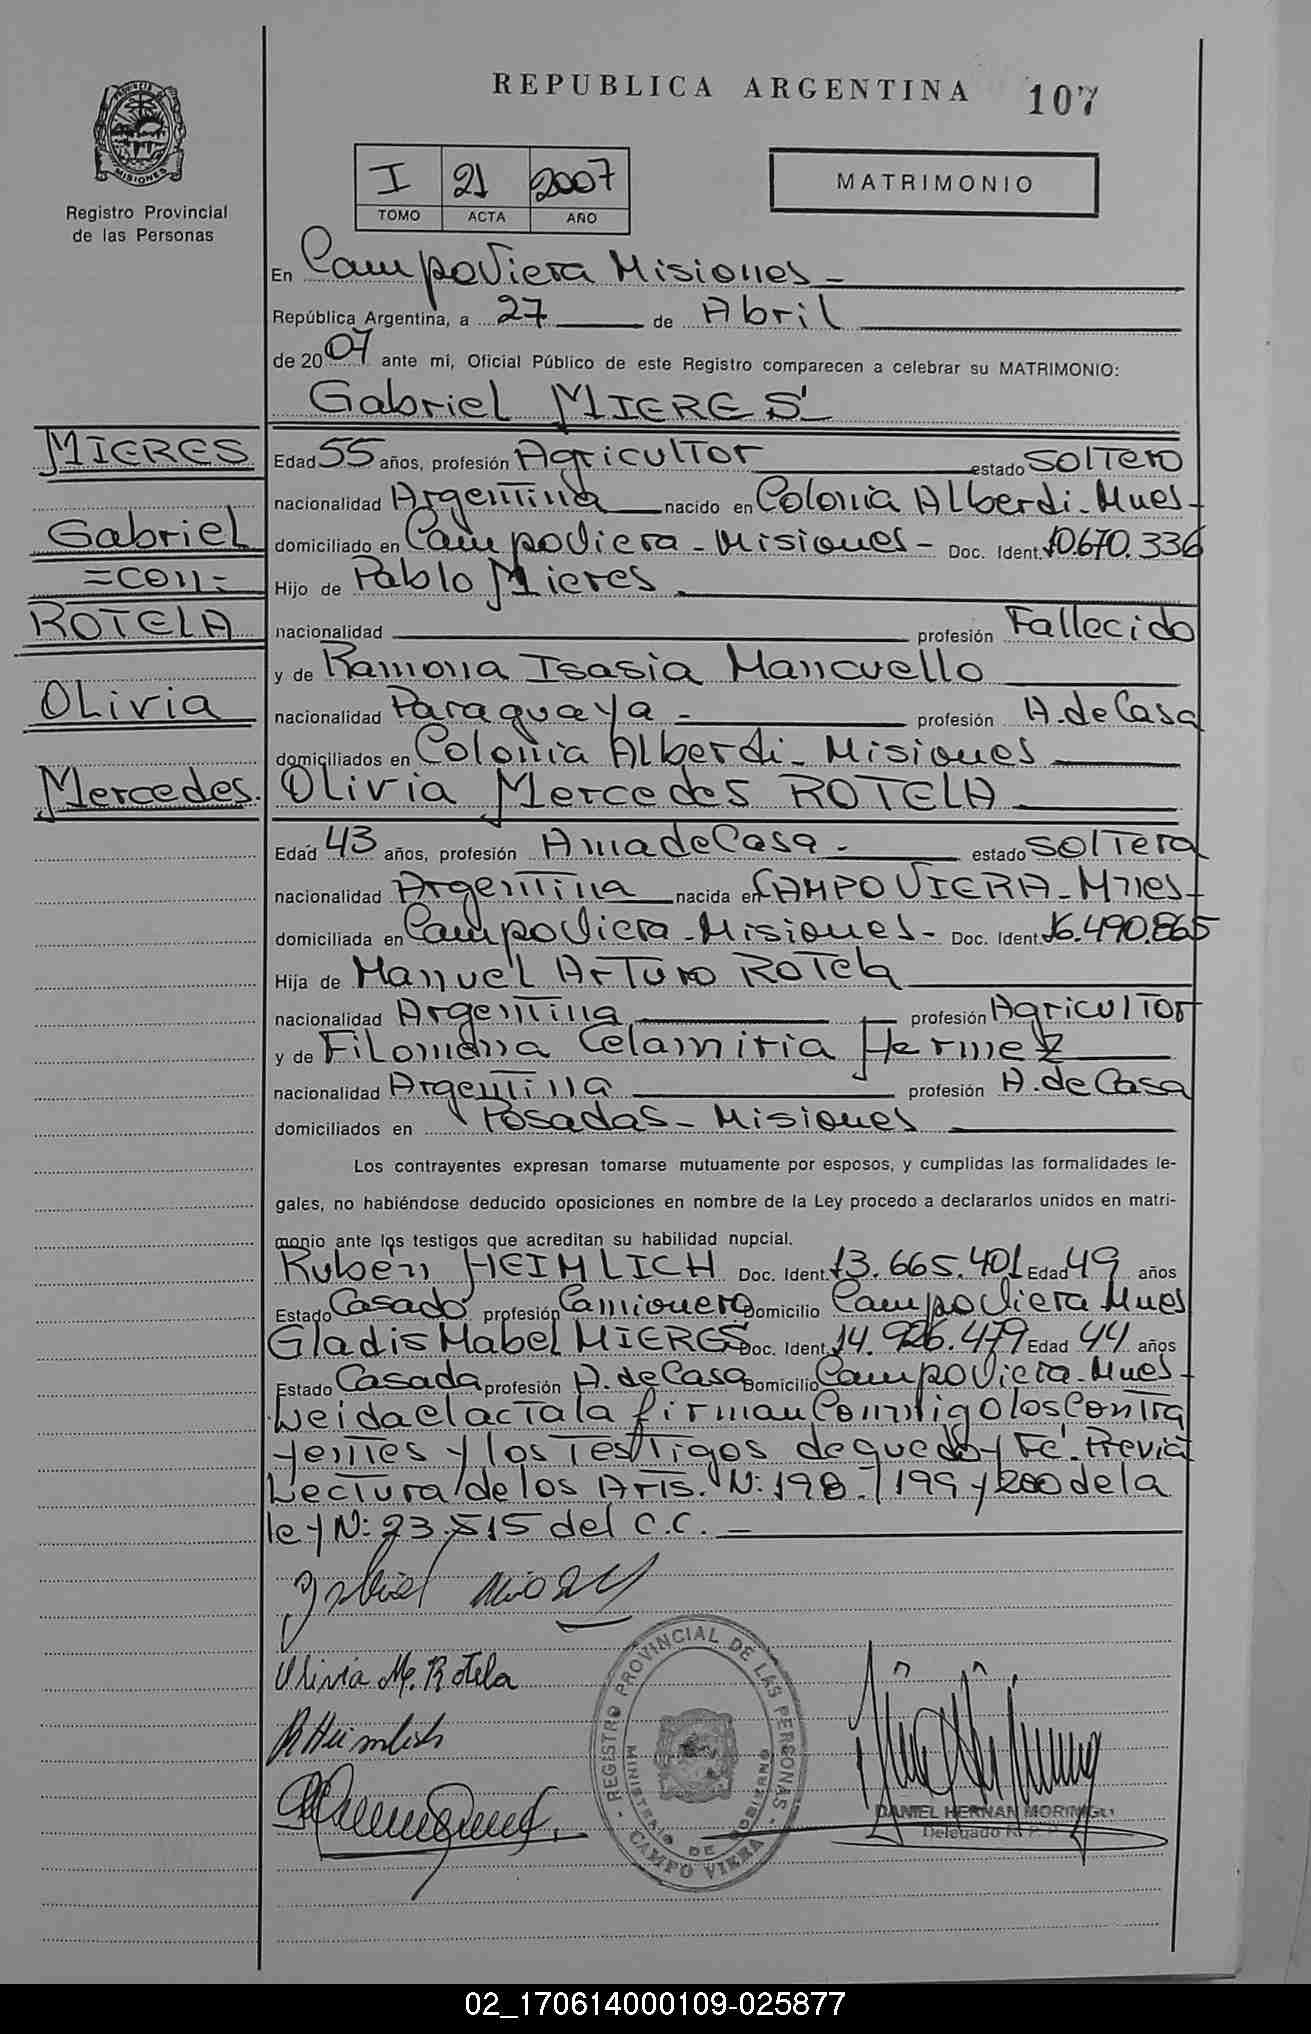 REPUBLICA ARGENTINA 107
PROVINCIA DE MISIONES
Registro Provincial
de las Personas
I 21 2007
TOMO ACTA AÑO
MATRIMONIO
En CampoViera Misiones -
República Argentina, a 27 de Abril
de 2007 ante mi, Oficial Público de este Registro comparecen a celebrar su MATRIMONIO:
Gabriel MIERES
MIERES
Gabriel
=con=
ROTELA
OLivia
Mercedes.
Edad 55 años, profesión Agricultor estado Soltero
nacionalidad Argentina nacido en Colonia Alberdi - Mnes -
domiciliado en CampoViera - Misiones - Doc. Ident. 10.670.336
Hijo de Pablo Mieres
nacionalidad profesión Fallecido
y de Ramona Isasia Mancuello
nacionalidad Paraguaya - profesión A. de Casa
domiciliados en Colonia Alberdi - Misiones
Olivia Mercedes ROTELA
Edad 43 años, profesión Ama de Casa - estado Soltera
nacionalidad Argentina nacida en CAMPO VIERA - Mnes -
domiciliada en CampoViera - Misiones - Doc. Ident. 16.490.865
Hija de Manuel Arturo Rotela
nacionalidad Argentina profesión Agricultor
y de Filomena Celamiria Hermez
nacionalidad Argentina profesión A. de Casa
domiciliados en Posadas - Misiones
Los contrayentes expresan tomarse mutuamente por esposos, y cumplidas las formalidades le-
gales, no habiéndose deducido oposiciones en nombre de la Ley procedo a declararlos unidos en matri-
monio ante los testigos que acreditan su habilidad nupcial.
Ruben HEIMLICH Doc. Ident. 13.665.401 Edad 49 años
Estado Casado profesión Camionero Domicilio CampoViera Mnes
Gladis Mabel MIERES Doc. Ident. 14.926.479 Edad 44 años
Estado Casada profesión A. de Casa Domicilio CampoViera - Mnes -
Leida el acta la firman Conmigo los Contra
yentes y los Testigos de que doy Fé. Previa
Lectura de los Arts. N: 198 - 199 y 200 de la
ley N: 23.515 del C.C. -
Gabriel Mieres
Olivia M. Rotela
R Heimlich
REGISTRO PROVINCIAL DE LAS PERSONAS
MINISTERIO DE GOBIERNO
CAMPO VIERA
DANIEL HERNAN MORINIGO
Delegado R. P. P.
02_170614000109-025877